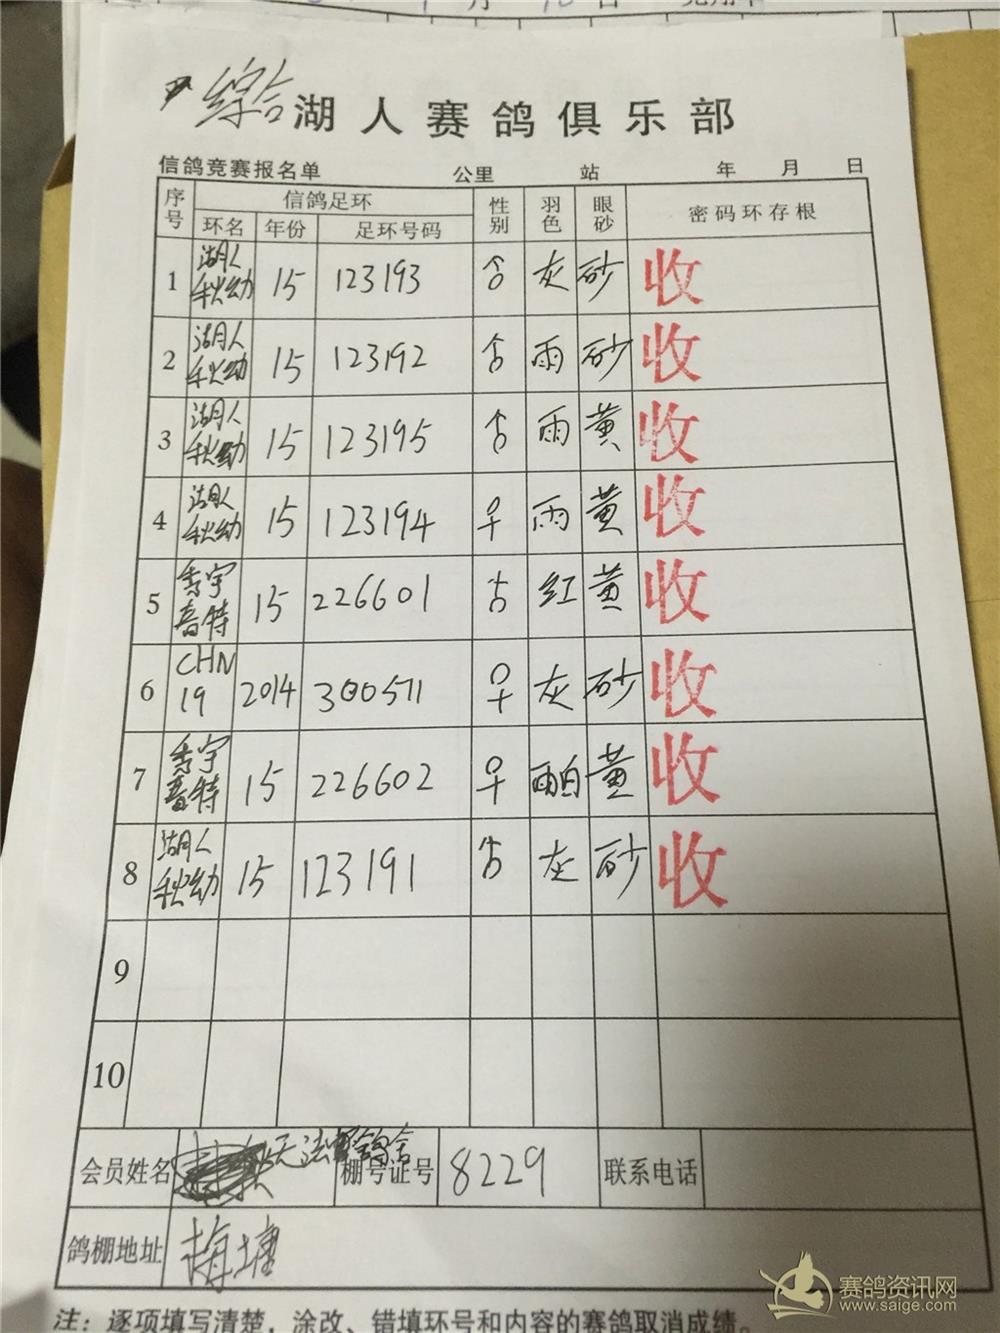 综合 湖人赛鸽俱乐部
信鸽竞赛报名单 公里 站 年 月 日
序号 信鸽足环 性别 羽色 眼砂 密码环存根
环名 年份 足环号码
1 湖人秋幼 15 123193 ♂ 灰 砂 收
2 湖人秋幼 15 123192 ♂ 雨 砂 收
3 湖人秋幼 15 123195 ♂ 雨 黄 收
4 湖人秋幼 15 123194 ♀ 雨 黄 收
5 宇特 15 226601 ♂ 红 黄 收
6 CHN19 2014 300571 ♀ 灰 砂 收
7 宇特 15 226602 ♀ 雨白 黄 收
8 湖人秋幼 15 123191 ♂ 灰 砂 收
9
10
会员姓名 天法鸽舍 棚号证号 8229 联系电话
鸽棚地址 梅塘
注：逐项填写清楚，涂改、错填环号和内容的赛鸽取消成绩。
赛鸽资讯网
www.saige.com